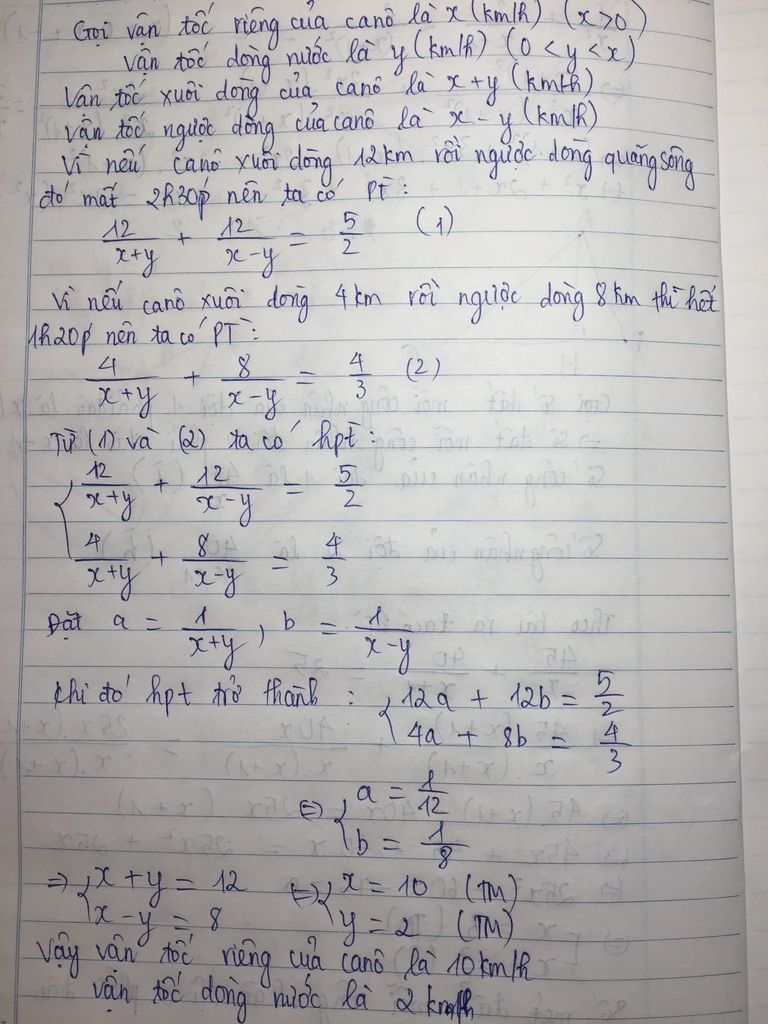 Gọi vận tốc riêng của canô là x (km/h) (x>0)
vận tốc dòng nước là y (km/h) (0 < y < x)
Vận tốc xuôi dòng của canô là x+y (km/h)
vận tốc ngược dòng của canô là x - y (km/h)
Vì nếu canô xuôi dòng 12km rồi ngược dòng quãng sông
đó mất 2h30p nên ta có PT:
12/(x+y) + 12/(x-y) = 5/2 (1)
Vì nếu canô xuôi dòng 4km rồi ngược dòng 8km thì hết
1h20p nên ta có PT:
4/(x+y) + 8/(x-y) = 4/3 (2)
Từ (1) và (2) ta có hpt:
{ 12/(x+y) + 12/(x-y) = 5/2
4/(x+y) + 8/(x-y) = 4/3
Đặt a = 1/(x+y), b = 1/(x-y)
Khi đó hpt trở thành : { 12a + 12b = 5/2
4a + 8b = 4/3
⇔ { a = 1/12
b = 1/8
⇒ { x + y = 12 ⇔ { x = 10 (TM)
x - y = 8 y = 2 (TM)
Vậy vận tốc riêng của canô là 10km/h
vận tốc dòng nước là 2 km/h